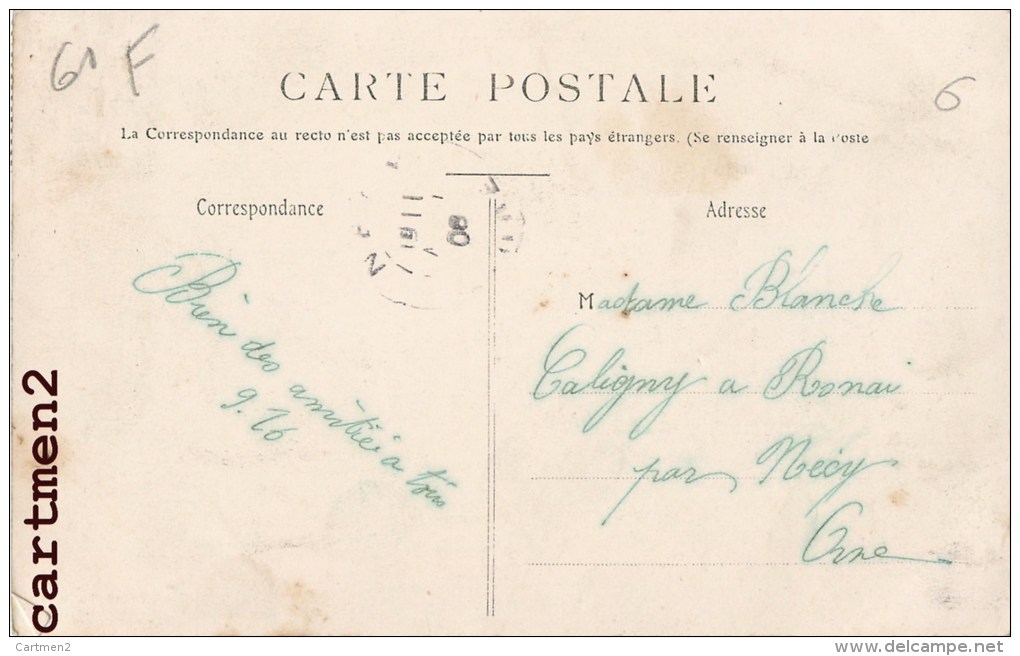 61 F
6
CARTE POSTALE
La Correspondance au recto n'est pas acceptée par tous les pays étrangers. (Se renseigner à la Poste
Correspondance
Adresse
08
Bien des amitiés à tous
Madame Blanche
Caligny a Ronai
par Nécy
Orne
cartmen2
Cartmen2
delcampe.net